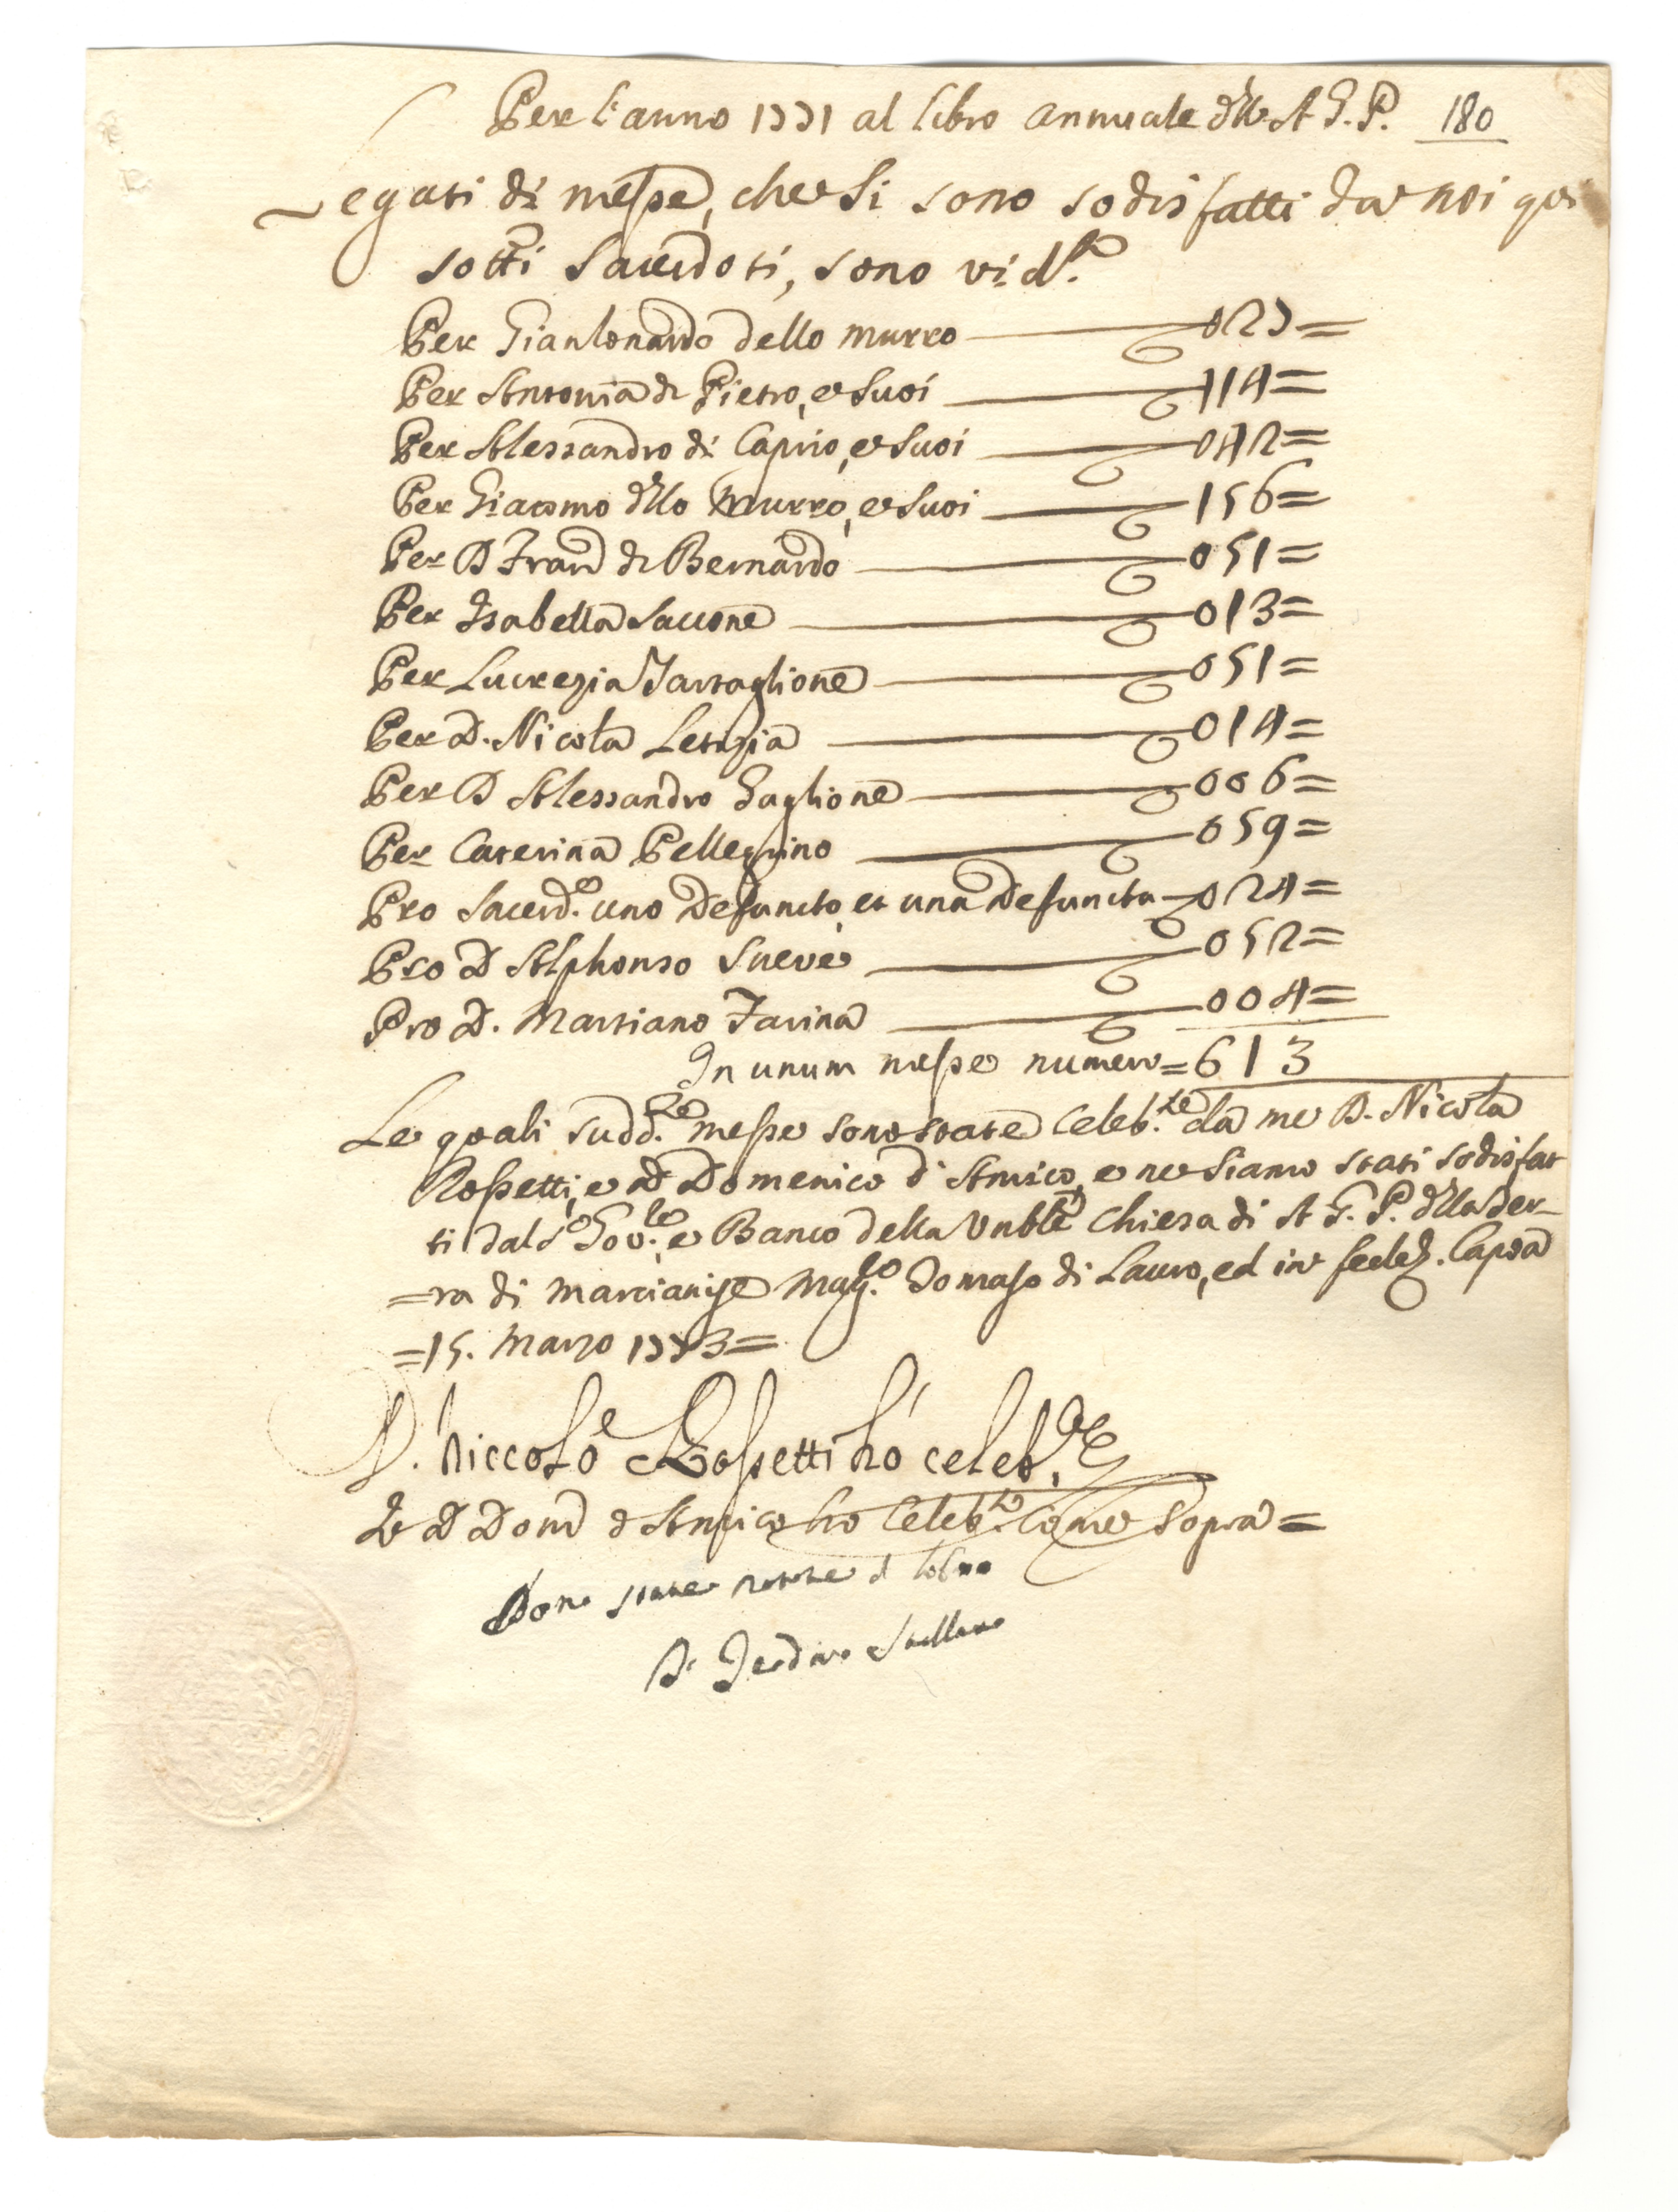 Per l'anno 1771 al libro annuale dllo A G. P. 180
Legati di messe, che si sono sodisfatti da noi qui
sotti Sacerdoti, sono vi: dt.
Per Gianlonardo dello Murro 027=
Per Antonia di Pietro, e Suoi 114=
Per Alessandro di Caprio, e Suoi 042=
Per Giacomo dllo Murro, e Suoi 156=
Per D Fran di Bernardo 051=
Per Isabella Saccone 013=
Per Lucrezia Tartaglione 051=
Per D. Nicola Letizia 014=
Per D Alessandro Gaglione 006=
Per Caterina Pellegrino 059=
Pro Sacerd.e uno Defuncto, et una Defuncta 024=
Pro D Alphonso Sueve 052=
Pro D. Martiano Farina 004=
In unum messe numero = 613
Le quali sudd.te messe sono state celeb.te da me D. Nicola
Rossetti, e D Domenico d'Amico, e ne siamo stati sodisfat
ti dal Sr Gov.le e Banco della Vnble Chiesa di A G. P. dlla Ter-
=ra di Marcianise Mag.co Tomaso di Lauro, ed in fede. Capoa
=15. Marzo 1773=
D. Niccolò Rossetti hò celeb.te
Io D Dom d'Amico ho celeb.to come sopra=
Sono state notate